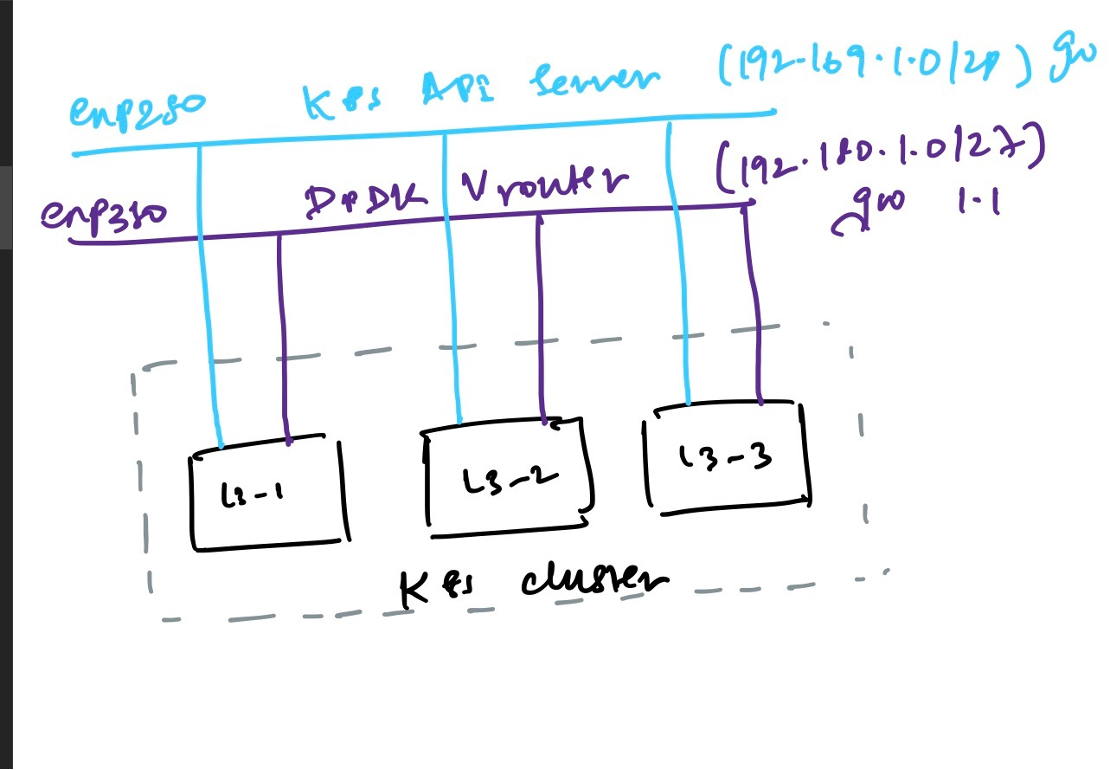 enp2s0 K8s API Server (192.169.1.0/28) gw
enp3s0 DPDK Vrouter (192.180.1.0/27)
gw 1.1
L3-1 L3-2 L3-3
K8s cluster